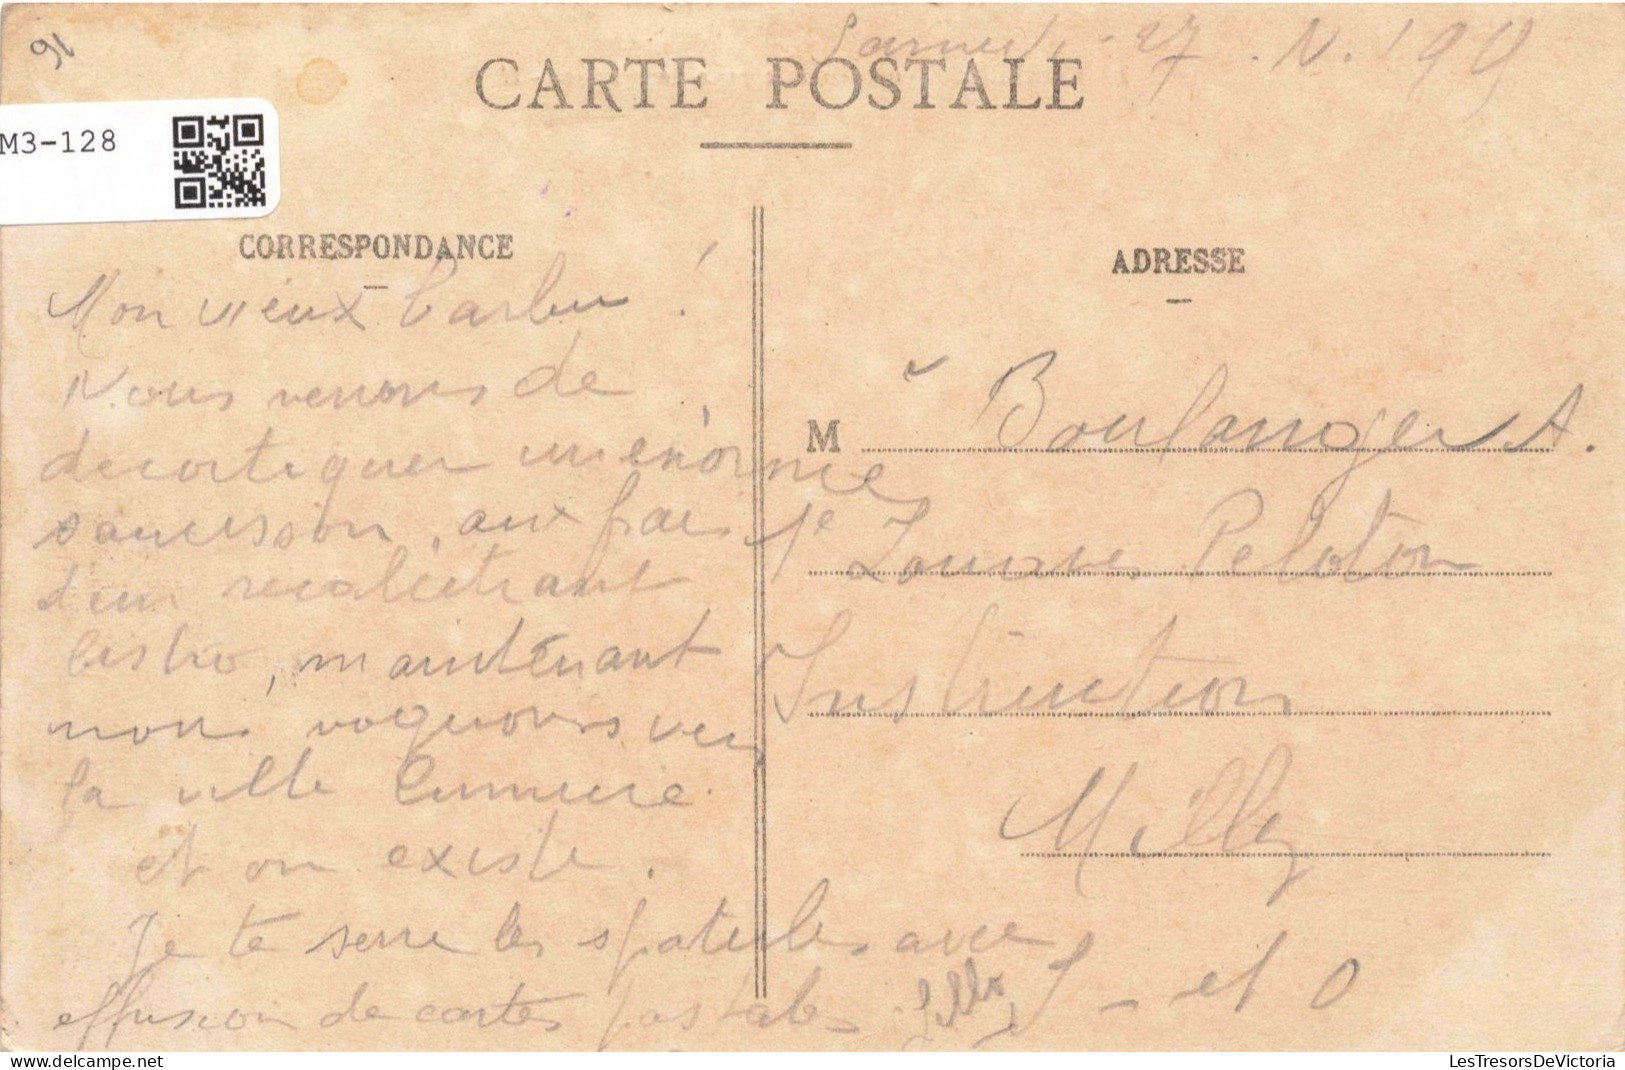 91
Samedi 27. N. 199
CARTE POSTALE
M3-128
CORRESPONDANCE
Mon vieux barbu !
Nous venons de
decortiquer un enorme
saucisson, aux frais
d'un recalcitrant
bistro, maintenant
nous voguons vers
la ville lumiere
et on existe.
Je te serre les spatules avec
effusion de cartes postales
ADRESSE
M Boulanger A.
1e Zouaves Peloton
Instruction
Milly
S - et O
LesTresorsDeVictoria